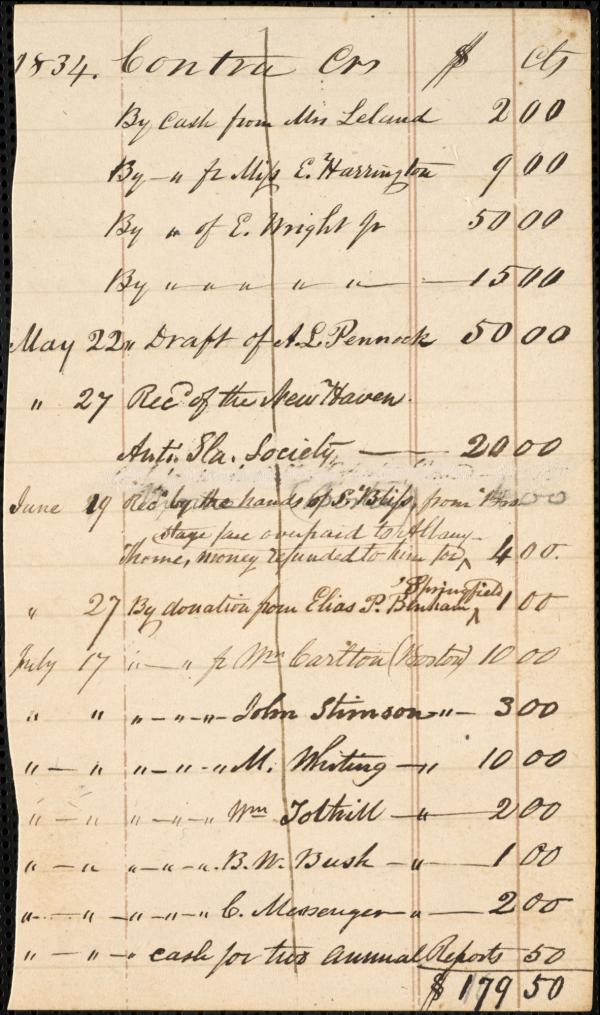 1834. Contra Crs $ Cts
By Cash from Mrs Leland 2 00
By — " fr Miss E. Harrington 9 00
By " of E. Wright Jr 50 00
By " " " " " — 15 00
May 22 " Draft of A. L. Pennock 50 00
" 27 Recd of the New Haven
Anti. Sla. Society — 20 00
June 19 Recd by the hands of S. Bliss, from Bro
stage fare overpaid to Albany
Thome, money refunded to him for ^ 4 00.
Springfield
" 27 By donation from Elias P. Benham ^ 1 00
July 17 " — " fr Wm Carlton (Boston) 10 00
" " " — " — " — John Stimson — " — 3 00
" — " " — " — " M. Whiting — " 10 00
" — " " — " — " Wm Tothill — " — 2 00
" — " " — " — " B. W. Bush — " — 1 00
" — " " — " — " C. Messenger — " — 2 00
" — " — " cash for two annual Reports 50
$ 179 50